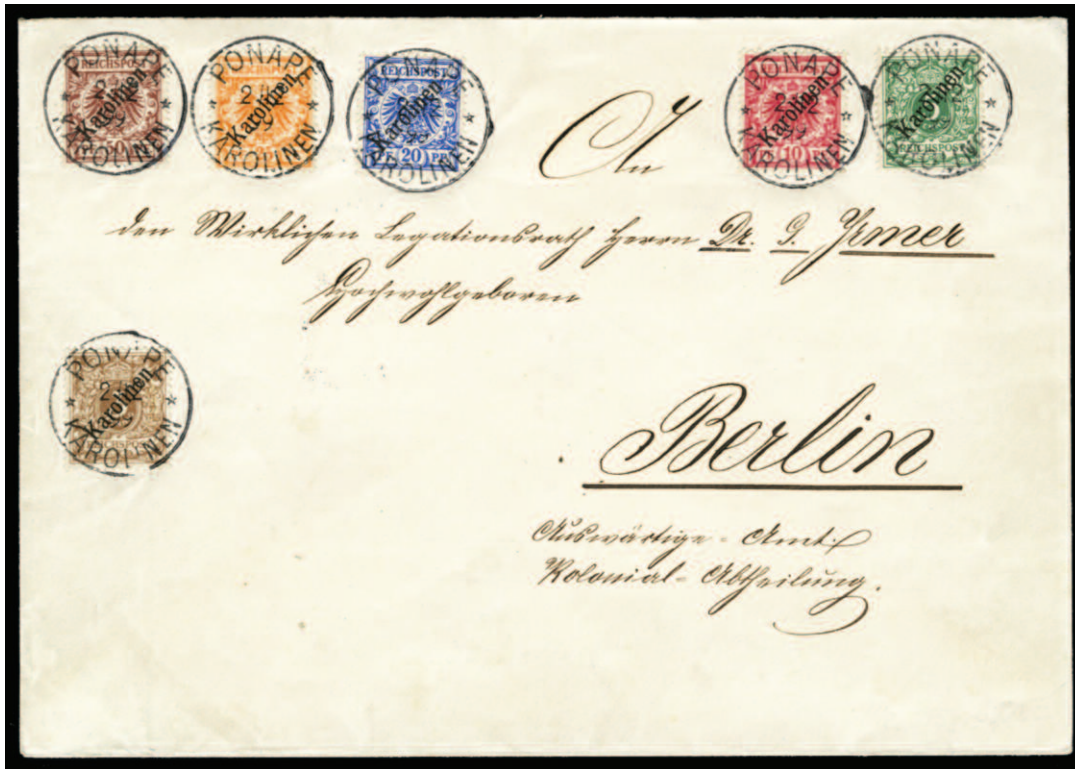 PONAPE KAROLINEN REICHSPOST Karolinen 50
PONAPE KAROLINEN Karolinen
PONAPE KAROLINEN REICHSPOST Karolinen 20 PF
PONAPE KAROLINEN Karolinen 10
PONAPE KAROLINEN Karolinen 5 REICHSPOST
An
den Wirklichen Legationsrath Herrn Dr. G. Irmer
Hochwohlgeboren
PONAPE KAROLINEN Karolinen
Berlin
Auswärtige-Amt.
Kolonial-Abtheilung.